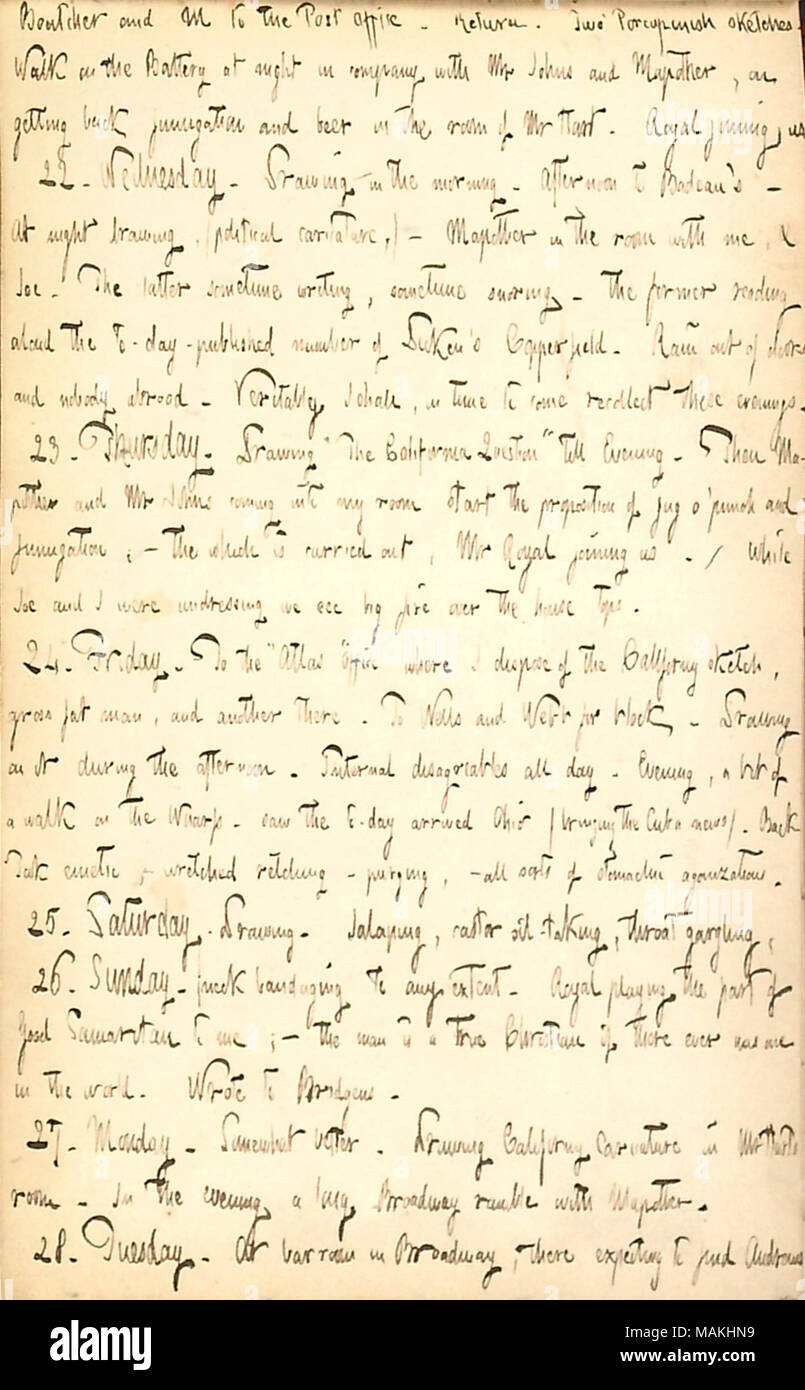 Boutcher and M to the Post Office. Return. Two Porcupinish sketches.
Walk on the Battery at night in company with Mr Johns and Mapother, on
getting back fumigation and beer in the room of Mr Hart. Royal joining us
22. Wednesday. Drawing in the morning. Afternoon to Bodeau's -
At night drawing, (political caricature,) - Mapother in the room with me, &
Joe. The latter sometime writing, sometime snoring, - the former reading
aloud the to-day-published number of Dicken's Copperfield. Rain out of doors
and nobody abroad. Veritably I shall, in time to come recollect these evenings.
23. Thursday. Drawing "The California Question" till Evening. Then Ma-
pother and Mr Johns coming into my room start the proposition of jug o' punch and
fumigation; - the which is carried out, Mr Royal joining us. / While
Joe and I were undressing we see big fire over the house tops.
24. Friday. To the "Atlas" Office where I dispose of the Californy sketch,
gross fat man, and another there. To Nells and Webb for block. Drawing
on it during the afternoon. Internal disagreables all day. Evening, a bit of
a walk on the Wharfs. saw the to-day arrived Ohio (bringing the Cuba news). Back
Took emetic, - wretched retching - purging, - all sorts of stomachic agonizations.
25. Saturday. Drawing. Jalaping, castor oil-taking, throat gargling,
26. Sunday. (neck bandaging to any extent. Royal playing the part of
Good Samaritan to me; - the man is a true Christian if there ever was one
in the world. Wrote to Bridgens.
27. Monday. Somewhat better. Drawing Californy Caricature in Mr Harts
room. In the evening a long Broadway ramble with Mapother.
28. Tuesday. At bar room in Broadway, there expecting to find Andrews
alamy
Image ID: MAKHN9
www.alamy.com